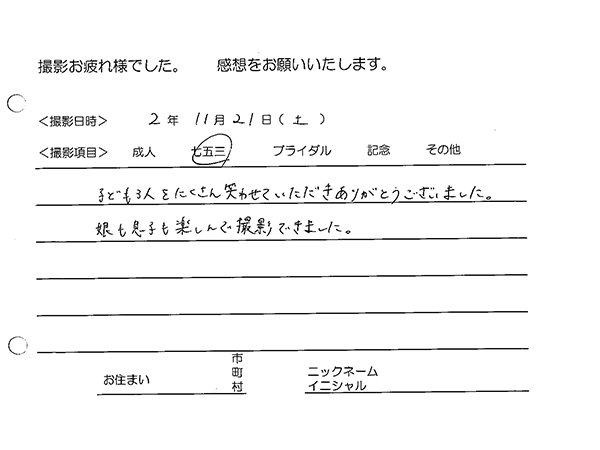 撮影お疲れ様でした。　感想をお願いいたします。
＜撮影日時＞　2年　11月21日（土）
＜撮影項目＞　成人　七五三　ブライダル　記念　その他
子ども3人をたくさん笑わせていただきありがとうございました。
娘も息子も楽しんで撮影できました。
お住まい　市町村　ニックネーム
イニシャル